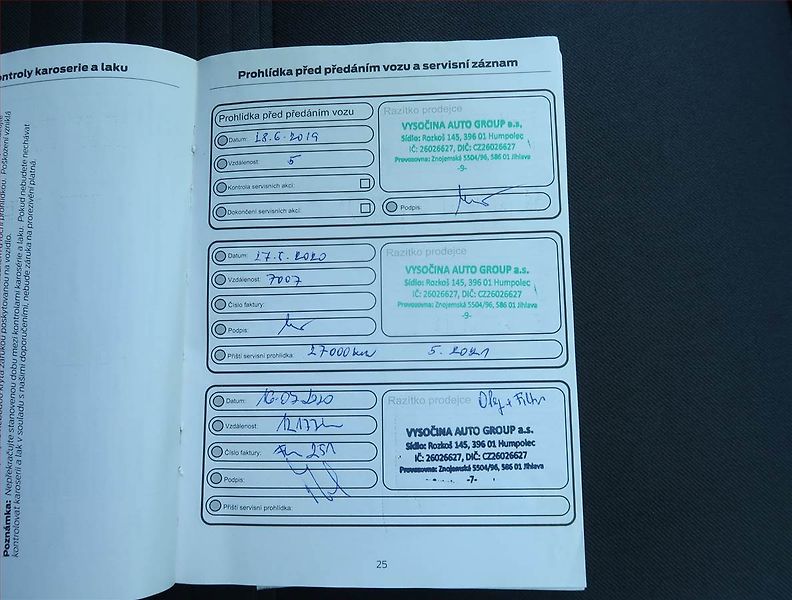 ntroly karoserie a laku
Poznámka: Nepřekračujte stanovenou dobu mezi kontrolami karosérie a laku. Pokud nebudete nechávat
kontrolovat karoserii a lak v souladu s našimi doporučeními, nebude záruka na prorezivění platná.
Prohlídka před předáním vozu a servisní záznam
Prohlídka před předáním vozu
Datum: 28.6.2019
Vzdálenost: 5
Kontrola servisních akcí:
Dokončení servisních akcí:
Razítko prodejce
VYSOČINA AUTO GROUP a.s,
Sídlo: Rozkoš 145, 396 01 Humpolec
IČ: 26026627, DIČ: CZ26026627
Provozovna: Znojemská 5504/96, 586 01 Jihlava
-9-
Podpis:
Datum: 27.5.2020
Vzdálenost: 7007
Číslo faktury:
Podpis:
Příští servisní prohlídka: 27000km 5.2021
Razítko prodejce
VYSOČINA AUTO GROUP a.s.
Sídlo: Rozkoš 145, 396 01 Humpolec
IČ: 26026627, DIČ: CZ26026627
Provozovna: Znojemská 5504/96, 586 01 Jihlava
-9-
Datum: 16.07.2020
Vzdálenost:
Číslo faktury: 251
Podpis:
Příští servisní prohlídka:
Razítko prodejce Olej + Filtr
VYSOČINA AUTO GROUP a.s.
Sídlo: Rozkoš 145, 396 01 Humpolec
IČ: 26026627, DIČ: CZ26026627
Provozovna: Znojemská 5504/96, 586 01 Jihlava
-7-
25